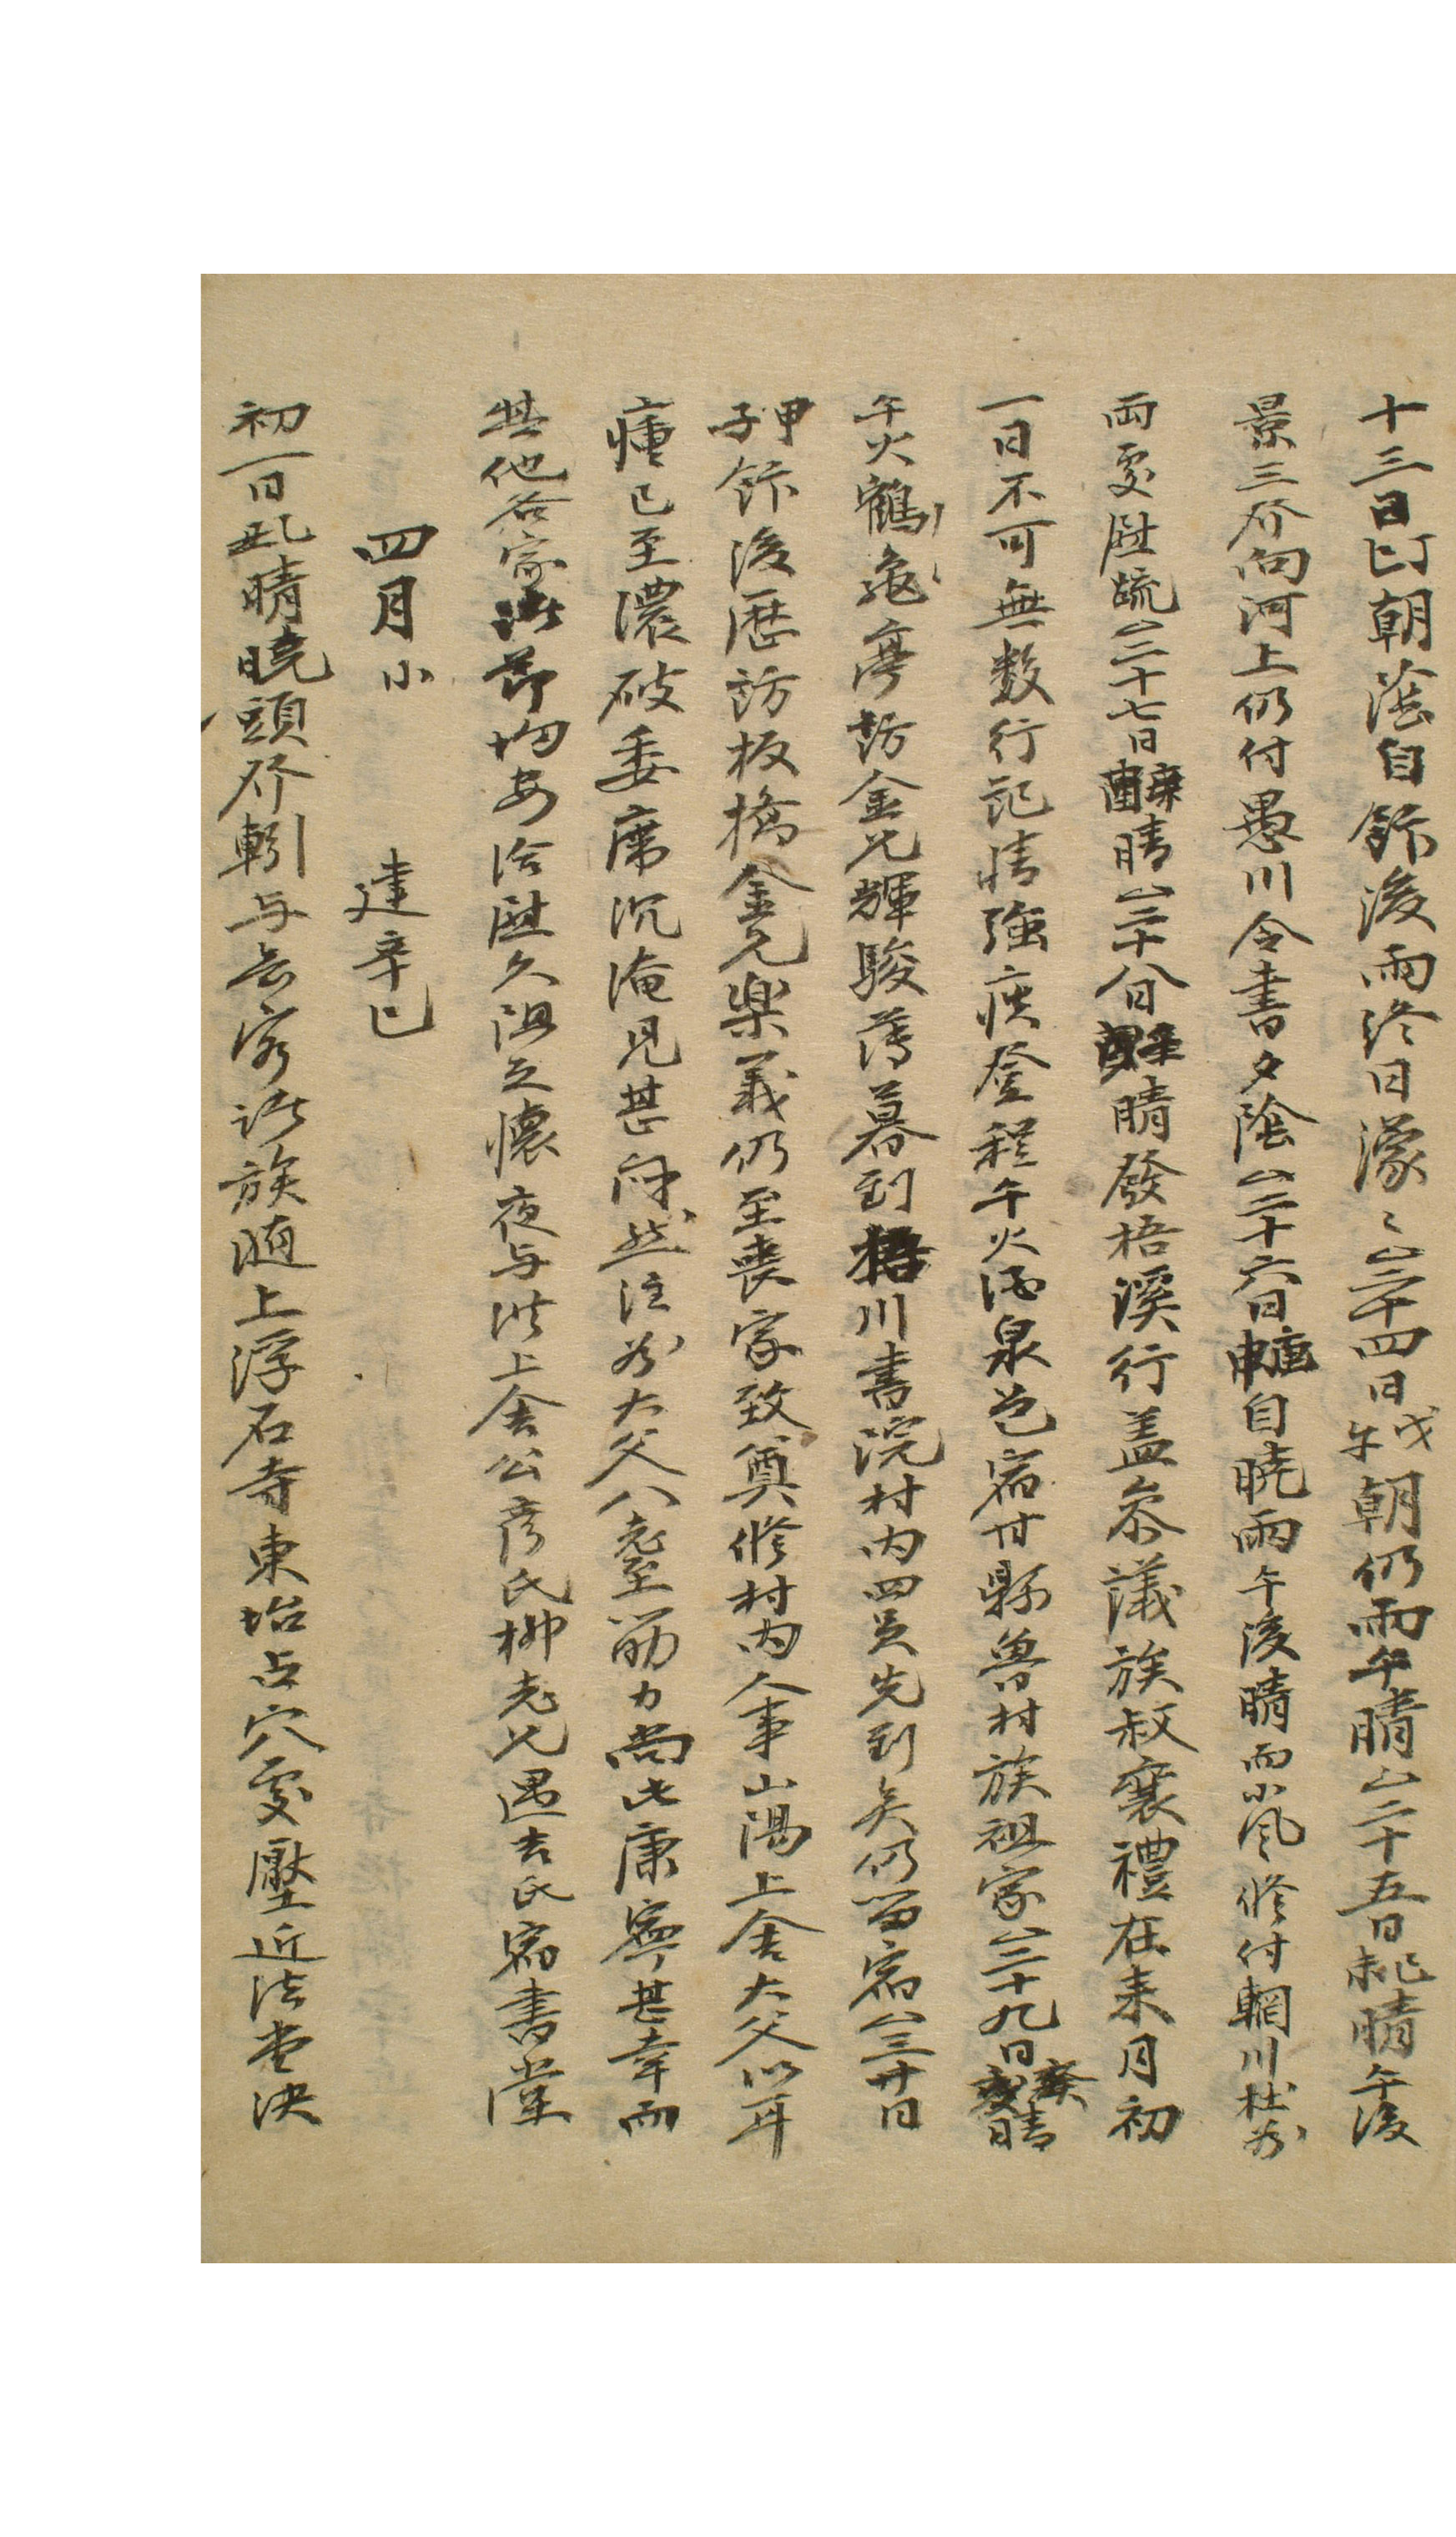 十三日丁巳朝蔭自飯後雨終日濛〻二十四日戊午朝仍雨午晴二十五日己未晴午後
景三奔向河上仍付愚川令書夕陰二十六日庚申自曉雨午後晴而小風修付輞川
兩處慰疏二十七日辛酉晴二十八日壬戌晴發梧溪行盖參議族叔襄禮在來月初
一日不可無數行記情強疾登程午火酒泉邑宿甘縣魯村族祖家二十九日癸亥晴
午火鶴龜亭訪金兄輝駿薄暮到梧川書院村內四員先到矣仍留宿三十日
甲子飯後歷訪板橋金兄樂義仍至喪家致奠修村內人事山陽上舍大父以耳
瘇已至濃破委席沉淹見甚悶然注谷大父八耋筋力尚此康寧甚幸而
其他各家諸節均安洽慰久阻之懷夜与洪上舍公彦氏柳老兄遇吉氏宿書堂
四月小 建辛巳
初一日乙丑晴曉頭發靷与會客諸族隨上浮石寺東培占穴處壓近法堂決